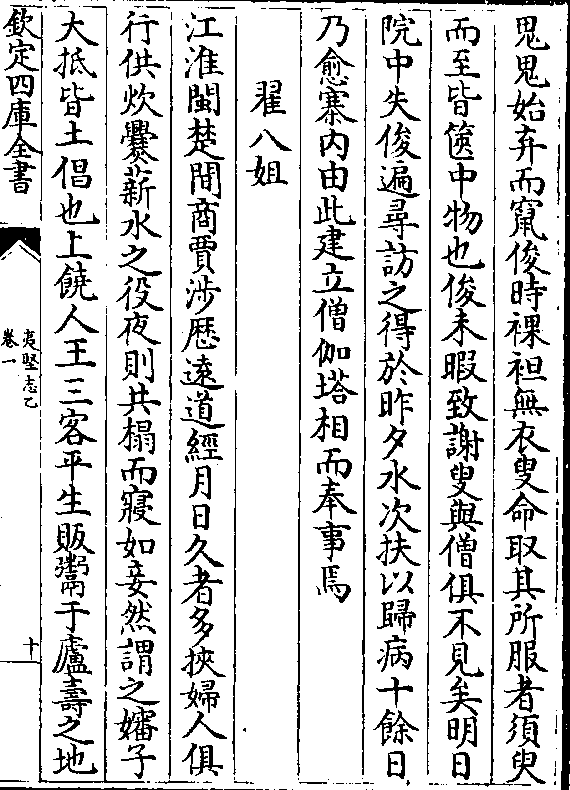 鬼鬼始弃而竄俊時裸袒無衣叟命取其所服者須臾
而至皆篋中物也俊未暇致謝叟與僧俱不見矣明日
院中失俊遍尋訪之得於昨夕水次扶以歸病十餘日
乃愈寨内由此建立僧伽塔相而奉事焉
翟八姐
江淮閩楚間商賈涉歴遠道經月日久者多挾婦人俱
行供炊爨薪水之役夜則共榻而寢如妾然謂之嬸子
大抵皆土倡也上饒人王三客平生販鬻于廬壽之地
欽定四庫全書
夷堅志乙
卷一
十